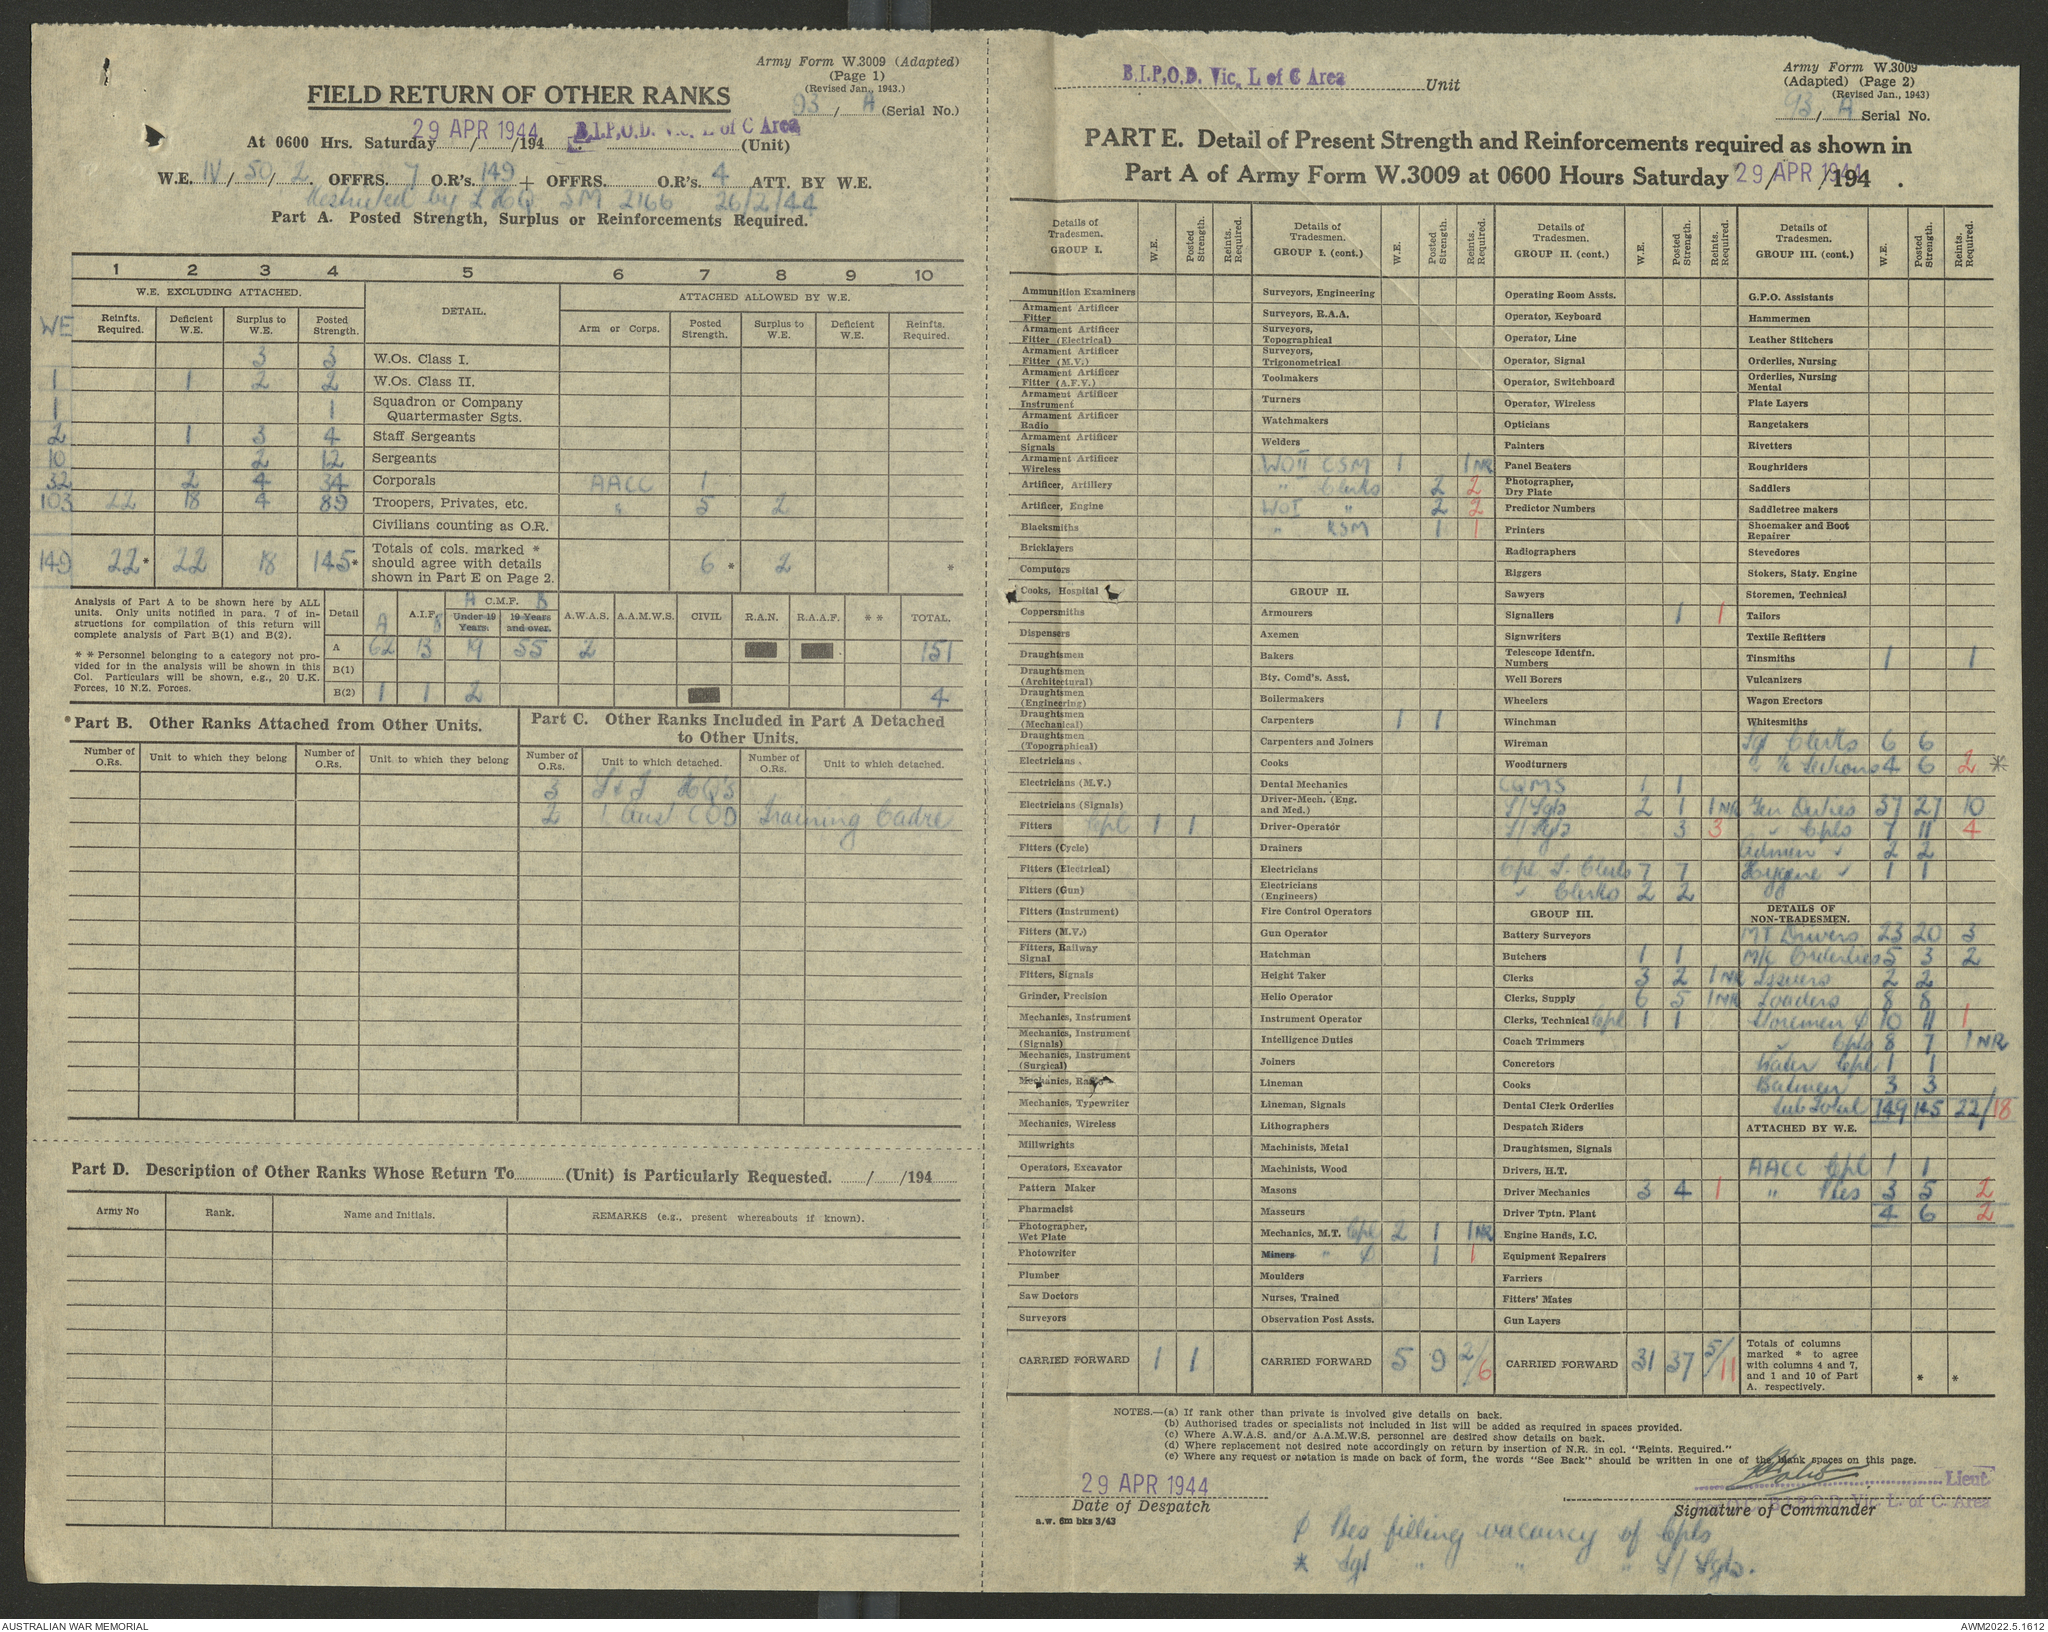 Army Form W.3009 (Adapted)
(Page 1)
(Revised Jan., 1943.)
FIELD RETURN OF OTHER RANKS
93 / A (Serial No.)
At 0600 Hrs. Saturday 29 APR 1944 /194 . B.I.P.O.D. Vic. L of C Area (Unit)
W.E. IV / 50 / 2 OFFRS. 7 O.R's. 149 + OFFRS. - O.R's. 4 ATT. BY W.E.
Restricted by LHQ SM 2166 26/2/44
Part A. Posted Strength, Surplus or Reinforcements Required.
1 2 3 4 5 6 7 8 9 10
W.E. EXCLUDING ATTACHED. DETAIL. ATTACHED ALLOWED BY W.E.
WE Reinfts. Required. Deficient W.E. Surplus to W.E. Posted Strength. Arm or Corps. Posted Strength. Surplus to W.E. Deficient W.E. Reinfts. Required.
3 3 W.Os. Class I.
1 1 2 2 W.Os. Class II.
1 1 Squadron or Company Quartermaster Sgts.
2 1 3 4 Staff Sergeants
10 2 12 Sergeants
32 2 4 34 Corporals AACC 1
103 22 18 4 89 Troopers, Privates, etc. " 5 2
Civilians counting as O.R.
149 22* 22 18 145* Totals of cols. marked * should agree with details shown in Part E on Page 2. 6 * 2 *
Analysis of Part A to be shown here by ALL units. Only units notified in para. 7 of instructions for compilation of this return will complete analysis of Part B(1) and B(2).
* * Personnel belonging to a category not provided for in the analysis will be shown in this Col. Particulars will be shown, e.g., 20 U.K. Forces, 10 N.Z. Forces.
Detail A A.I.F. B A C.M.F. B Under 19 Years. 19 Years and over. A.W.A.S. A.A.M.W.S. CIVIL R.A.N. R.A.A.F. * * TOTAL.
A 62 13 19 55 2 151
B(1)
B(2) 1 1 2 4
* Part B. Other Ranks Attached from Other Units.
Number of O.Rs. Unit to which they belong Number of O.Rs. Unit to which they belong
Part C. Other Ranks Included in Part A Detached to Other Units.
Number of O.Rs. Unit to which detached. Number of O.Rs. Unit to which detached.
3 HQ'S
2 1 Aust COD Training Cadre
Part D. Description of Other Ranks Whose Return To (Unit) is Particularly Requested. / /194
Army No Rank. Name and Initials. REMARKS (e.g., present whereabouts if known).
B.I.P.O.D. Vic. L of C Area Unit
Army Form W.3009
(Adapted) (Page 2)
(Revised Jan., 1943)
93 / A Serial No.
PART E. Detail of Present Strength and Reinforcements required as shown in
Part A of Army Form W.3009 at 0600 Hours Saturday 29 APR 1944 / /194 .
Details of Tradesmen. GROUP I. W.E. Posted Strength. Reints. Required.
Ammunition Examiners
Armament Artificer Fitter
Armament Artificer Fitter (Electrical)
Armament Artificer Fitter (M.V.)
Armament Artificer Fitter (A.F.V.)
Armament Artificer Instrument
Armament Artificer Radio
Armament Artificer Signals
Armament Artificer Wireless
Artificer, Artillery
Artificer, Engine
Blacksmiths
Bricklayers
Computors
Cooks, Hospital
Coppersmiths
Dispensers
Draughtsmen
Draughtsmen (Architectural)
Draughtsmen (Engineering)
Draughtsmen (Mechanical)
Draughtsmen (Topographical)
Electricians
Electricians (M.V.)
Electricians (Signals)
Fitters Cpl 1 1
Fitters (Cycle)
Fitters (Electrical)
Fitters (Gun)
Fitters (Instrument)
Fitters (M.V.)
Fitters, Railway Signal
Fitters, Signals
Grinder, Precision
Mechanics, Instrument
Mechanics, Instrument (Signals)
Mechanics, Instrument (Surgical)
Mechanics, Radio
Mechanics, Typewriter
Mechanics, Wireless
Millwrights
Operators, Excavator
Pattern Maker
Pharmacist
Photographer, Wet Plate
Photowriter
Plumber
Saw Doctors
Surveyors
CARRIED FORWARD 1 1
Details of Tradesmen. GROUP I. (cont.) W.E. Posted Strength. Reints. Required.
Surveyors, Engineering
Surveyors, R.A.A.
Surveyors, Topographical
Surveyors, Trigonometrical
Toolmakers
Turners
Watchmakers
Welders
WOII CSM 1 1NR
" Clerks 2 2
WOI " 2 2
" RSM 1 1
GROUP II.
Armourers
Axemen
Bakers
Bty. Comd's. Asst.
Boilermakers
Carpenters 1 1
Carpenters and Joiners
Cooks
Dental Mechanics
Driver-Mech. (Eng. and Med.)
Driver-Operator
Drainers
Electricians
Electricians (Engineers)
Fire Control Operators
Gun Operator
Hatchman
Height Taker
Helio Operator
Instrument Operator
Intelligence Duties
Joiners
Lineman
Lineman, Signals
Lithographers
Machinists, Metal
Machinists, Wood
Masons
Masseurs
Mechanics, M.T. Cpl 2 1 1NR
Miners " ¢ 1 1
Moulders
Nurses, Trained
Observation Post Assts.
CARRIED FORWARD 5 9 2/6
Details of Tradesmen. GROUP II. (cont.) W.E. Posted Strength. Reints. Required.
Operating Room Assts.
Operator, Keyboard
Operator, Line
Operator, Signal
Operator, Switchboard
Operator, Wireless
Opticians
Painters
Panel Beaters
Photographer, Dry Plate
Predictor Numbers
Printers
Radiographers
Riggers
Sawyers
Signallers 1 1
Signwriters
Telescope Identfn. Numbers
Well Borers
Wheelers
Winchman
Wireman
Woodturners
CQMS 1 1
S/Sgts 2 1 1NR
S/Sgts 3 3
Cpl S. Clerks 7 7
" Clerks 2 2
GROUP III.
Battery Surveyors
Butchers 1 1
Clerks 3 2 1NR
Clerks, Supply 6 5 1NR
Clerks, Technical Cpl 1 1
Coach Trimmers
Concretors
Cooks
Dental Clerk Orderlies
Despatch Riders
Draughtsmen, Signals
Drivers, H.T.
Driver Mechanics 3 4 1
Driver Tptn. Plant
Engine Hands, I.C.
Equipment Repairers
Farriers
Fitters' Mates
Gun Layers
CARRIED FORWARD 31 37 5/11
Details of Tradesmen. GROUP III. (cont.) W.E. Posted Strength. Reints. Required.
G.P.O. Assistants
Hammermen
Leather Stitchers
Orderlies, Nursing
Orderlies, Nursing Mental
Plate Layers
Rangetakers
Rivetters
Roughriders
Saddlers
Saddletree makers
Shoemaker and Boot Repairer
Stevedores
Stokers, Staty. Engine
Storemen, Technical
Tailors
Textile Refitters
Tinsmiths 1 1
Vulcanizers
Wagon Erectors
Whitesmiths
Sgt Clerks 6 6
" 4 6 2 *
Gen Duties 37 27 10
" Cpls 7 11 4
Admin " 2 2
Hygiene " 1 1
DETAILS OF NON-TRADESMEN.
MT Drivers 23 20 3
M/C Orderlies 5 3 2
Issuers 2 2
Loaders 8 8
Storemen ¢ 10 11 1
" Cpls 8 7 1NR
Water Cpl 1 1
Batmen 3 3
Sub Total 149 145 22/18
ATTACHED BY W.E.
AACC Cpl 1 1
" Ptes 3 5 2
4 6 2
Totals of columns marked * to agree with columns 4 and 7, and 1 and 10 of Part A. respectively. * *
NOTES.—(a) If rank other than private is involved give details on back.
(b) Authorised trades or specialists not included in list will be added as required in spaces provided.
(c) Where A.W.A.S. and/or A.A.M.W.S. personnel are desired show details on back.
(d) Where replacement not desired note accordingly on return by insertion of N.R. in col. "Reints. Required."
(e) Where any request or notation is made on back of form, the words "See Back" should be written in one of the blank spaces on this page.
29 APR 1944
Date of Despatch
a.w. 6m bks 3/43
Lieut
B.I.P.O.D. Vic. L. of C. Area
Signature of Commander
¢ Ptes filling vacancy of Cpls
* Sgt " " " S/Sgts.
AUSTRALIAN WAR MEMORIAL
AWM2022.5.1612